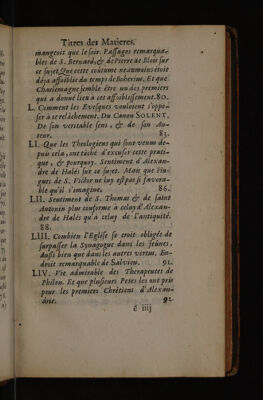 Titres des Matieres.
mangeoit que le soir. Passages remarqua-
bles de S. Bernard, & de Pierre de Blois sur
ce sujet. Que cette coûtume neaumoins étoit
déja affoiblie du temps de Boberius. Et que
Charlemagne semble être un des premiers
qui a donné lieu à cet affoiblissement. 80.
L. Comment les Evesques vouloient s'oppo-
ser à ce relâchement. Du Canon SOLENT.
De son veritable sens, & de son Au-
teur. 83.
LI. Que les Theologiens qui sont venus de-
puis cela, ont tâché d'excuser cette prati-
que, & pourquoy. Sentiment d'Alexan-
dre de Halés sur ce sujet. Mais que Hu-
gues de S. Victor ne luy est pas si favora-
ble qu'il s'imagine. 86.
LII. Sentiment de S. Thomas & de saint
Antonin plus conforme à celuy d'Alexan-
dre de Halés qu'à celuy de l'antiquité.
88.
LIII. Combien l'Eglise se croit obligée de
surpasser la Synagogue dans les jeûnes,
Aussi bien que dans les autres vertus. En-
droit remarquable de Salvien. 91.
LIV. Vie admirable des Therapeutes de
Philon. Et que plusieurs Peres les ont pris
pour les premiers Chrétiens d'Alexan-
drie. 92.
é iiij